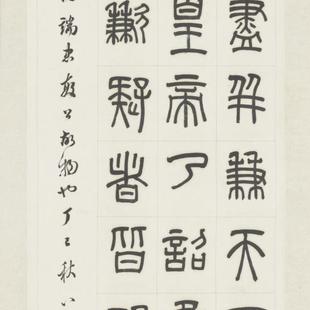 盡并兼天
皇帝乃詔丞
歉疑者皆明
端忠敏公故物也丁巳秋八